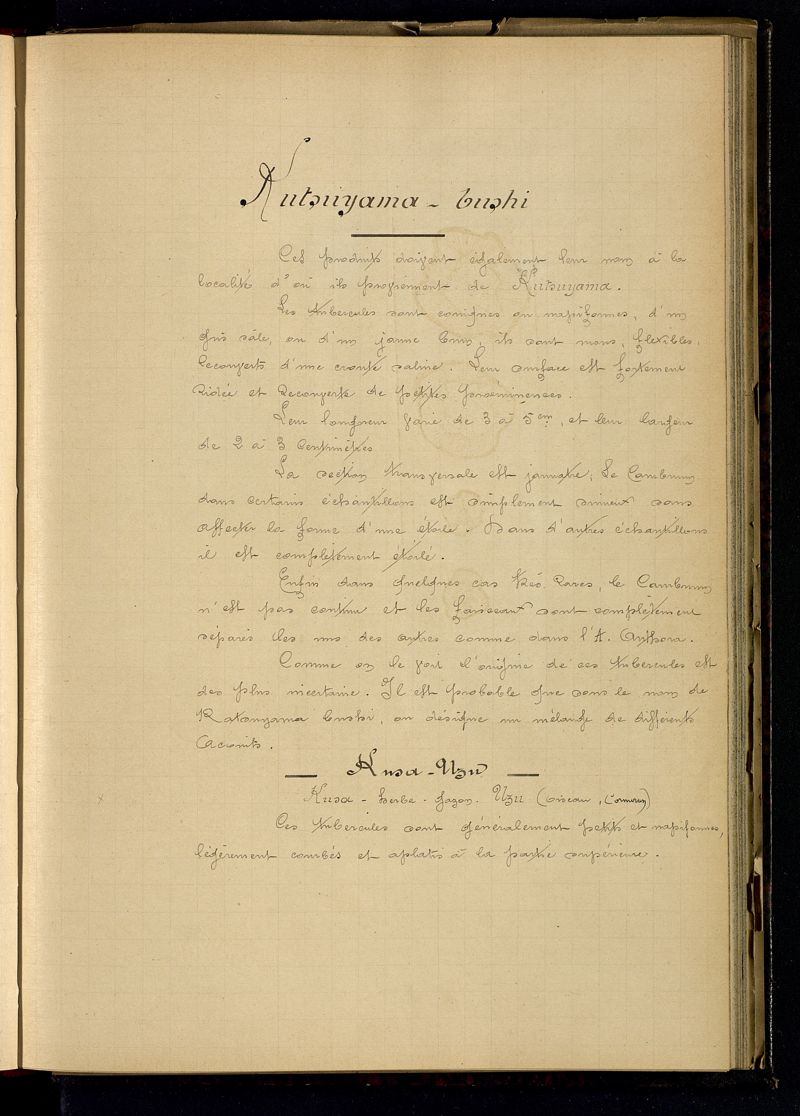 Kutsuyama - bushi
Ces produits doivent également leur nom à la
localité d'où ils proviennent de Kutsuyama.
Les tubercules sont coniques ou napiformes, d'un
gris sâle, ou d'un jaune brun, ils sont mous, flexibles,
recouverts d'une croute saline. Leur surface est fortement
ridée et recouverte de petites proéminences.
Leur longueur varie de 3 à 5 cm, et leur largeur
de 2 à 3 centimètres
La section transversale est jaunatre; le Cambium
dans certains échantillons est simplement sinueux sans
affecter la forme d'une étoile. Dans d'autres échantillons
il est complètement étoilé.
Enfin dans quelques cas très rares, le Cambium
n'est pas continu et les faisceaux sont complètement
séparés les uns des autres comme dans l'A. Anthora.
Comme on le voit l'origine de ces tubercules est
des plus incertaine. Il est probable que sous le nom de
Katsuyama bushi, on désigne un mélange de différents
Aconits.
Kusa - Uzu
Kusa - herbe - gazon. Uzu (oiseau, Cormoran)
Ces tubercules sont généralement petits et napiformes,
légèrement courbés et aplatis à la partie supérieure.